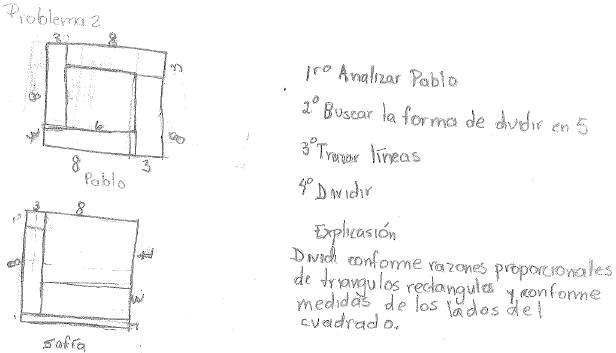 Problema 2
3 8
3
8
6
8
8 3
Pablo
1ro Analizar Pablo
2º Buscar la forma de dividir en 5
3º Trazar líneas
4º Dividir
Explicasión
Dividí conforme razones proporcionales
de triangulos rectangulos y conforme
medidas de los lados del
cuadrado.
3 8
8
Sofía